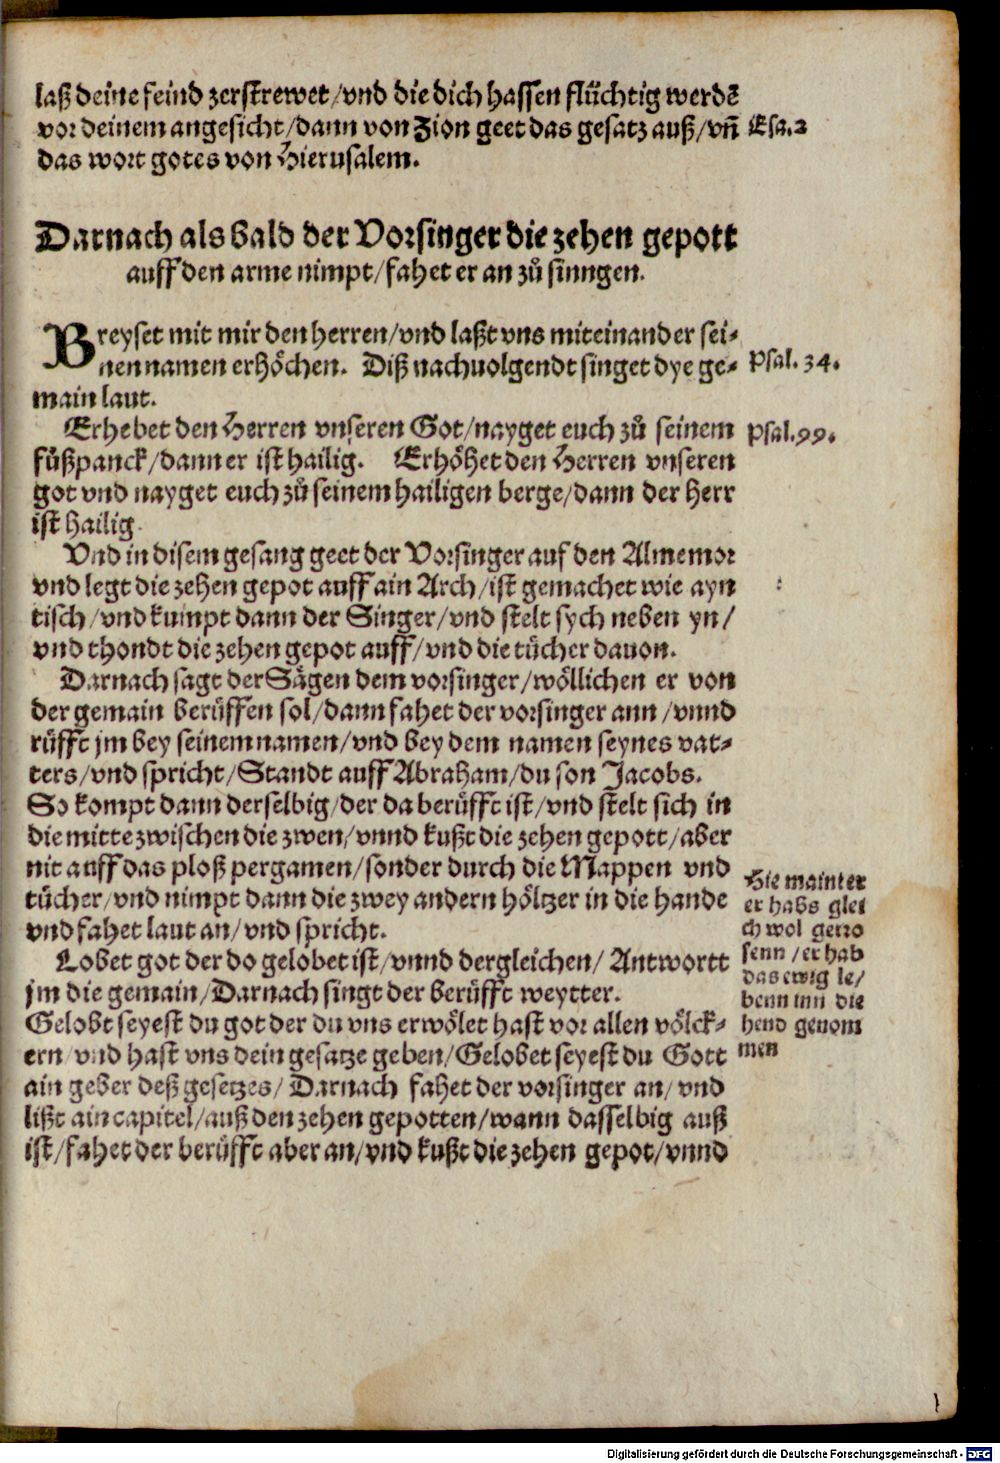 laß deine feind zerstrewet/vnd die dich hassen flüchtig werdē
vor deinem angesicht/dann von Zion geet das gesatz auß/vn̄ Esa.2
das wort gotes von Hierusalem.
Darnach als bald der Vorsinger die zehen gepott
auff den arme nimpt/fahet er an zů sinngen.
Breyset mit mir den herren/vnd laßt vns miteinander sei-
nen namen erhöchen. Diß nachuolgendt singet dye ge- Psal. 34.
main laut.
Erhebet den Herren vnseren Got/nayget euch zů seinem Psal.99.
fůßpanck/dann er ist hailig. Erhöhet den Herren vnseren
got vnd nayget euch zů seinem hailigen berge/dann der Herr
ist hailig.
Vnd in disem gesang geet der Vorsinger auf den Almemor
vnd legt die zehen gepot auff ain Arch/ist gemachet wie ayn
tisch/vnd kumpt dann der Singer/vnd stelt sych neben yn/
vnd thondt die zehen gepot auff/vnd die tücher dauon.
Darnach sagt der Sägen dem vorsinger/wöllichen er von
der gemain berüffen sol/dann fahet der vorsinger ann/vnnd
rüfft jm bey seinem namen/vnd bey dem namen seynes vat-
ters/vnd spricht/Standt auff Abraham/du son Jacobs.
So kompt dann derselbig/der da berüfft ist/vnd stelt sich in
die mitte zwischen die zwen/vnnd kußt die zehen gepott/aber
nit auff das ploß pergamen/sonder durch die Mappen vnd
tücher/vnd nimpt dann die zwey andern höltzer in die hande
vnd fahet laut an/vnd spricht.
Lobet got der do gelobet ist/vnnd dergleichen/ Antwortt
jm die gemain/Darnach singt der berüfft weytter.
Gelobt seyest du got der du vns erwölet hast vor allen völck-
ern/vnd hast vns dein gesatze geben/Gelobet seyest du Gott
ain geber deß gesetzes/ Darnach fahet der vorsinger an/vnd
lißt ain capitel/auß den zehen gepotten/wann dasselbig auß
ist/fahet der berüfft aber an/vnd kußt die zehen gepot/vnnd
Hie maint er
er habs glei
ch wol geno
senn/er hab
das ewig le/
benn inn die
hend genom
men
Digitalisierung gefördert durch die Deutsche Forschungsgemeinschaft - DFG